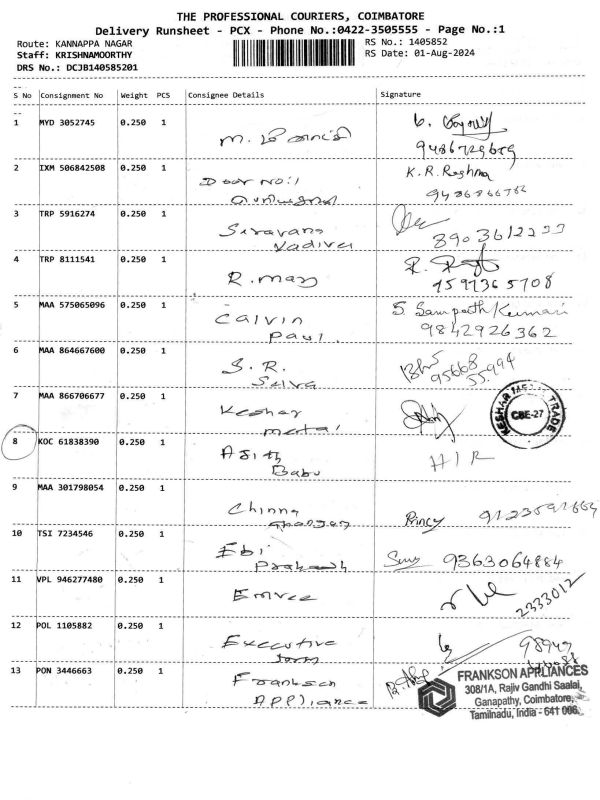 THE PROFESSIONAL COURIERS, COIMBATORE
Delivery Runsheet - PCX - Phone No.:0422-3505555 - Page No.:1
Route: KANNAPPA NAGAR
Staff: KRISHNAMOORTHY
DRS No.: DCJB140585201
RS No.: 1405852
RS Date: 01-Aug-2024
S No Consignment No Weight PCS Consignee Details Signature
1 MYD 3052745 0.250 1
2 IXM 506842508 0.250 1 Door NO:1 K.R. Reshma
3 TRP 5916274 0.250 1 Saravana
Vadivel
4 TRP 8111541 0.250 1 R. mary
7597365708
5 MAA 575065096 0.250 1 Calvin S. Sampath Kumari
Paul. 9842926362
6 MAA 864667600 0.250 1 S.R.
Selva 95668
55994
7 MAA 866706677 0.250 1 Keshar
metal
KESHAR METAL TRADE
CBE-27
8 KOC 61838390 0.250 1 Ajith HIR
Babu
9 MAA 301798054 0.250 1 Chinna Princy
10 TSI 7234546 0.250 1 Ebi 9363064884
Prakash
11 VPL 946277480 0.250 1 Emvee 2333012
12 POL 1105882 0.250 1 Executive
13 PON 3446663 0.250 1 Frankson
Appliance
FRANKSON APPLIANCES
308/1A, Rajiv Gandhi Saalai,
Ganapathy, Coimbatore,
Tamilnadu, India - 641 006.